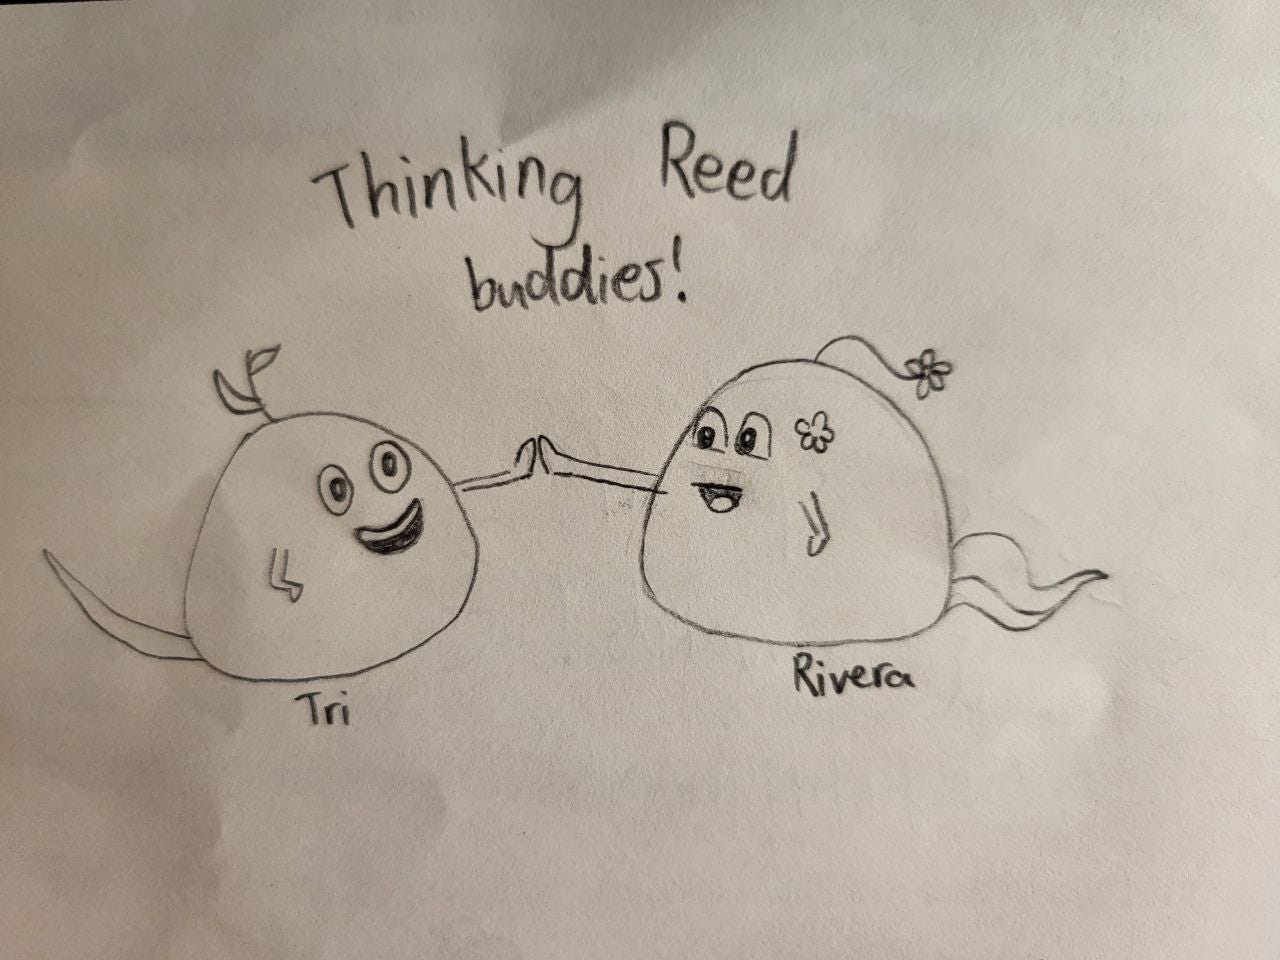 Thinking Reed
buddies!
Tri
Rivera